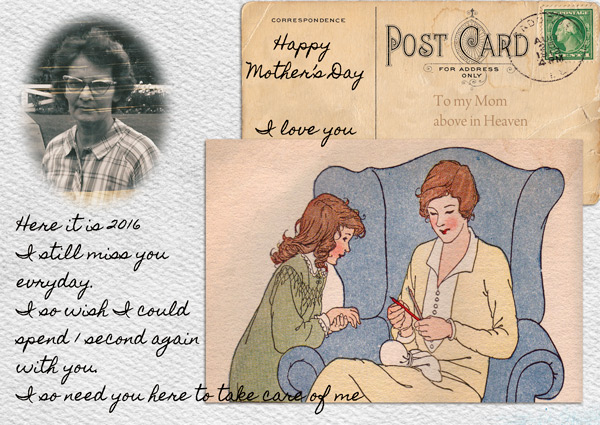 CORRESPONDENCE
Happy
Mother's Day
I love you
POST CARD
FOR ADDRESS
ONLY
To my Mom
above in Heaven
Here it is 2016
I still miss you
evryday.
I so wish I could
spend 1 second again
with you.
I so need you here to take care of me